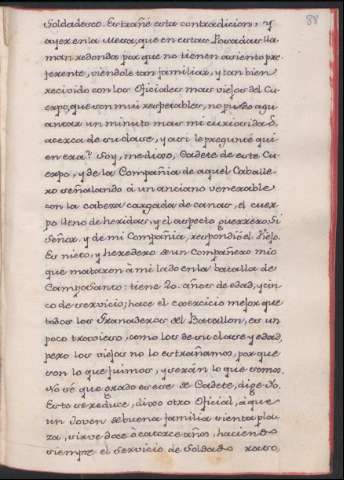 88
Soldadesco. Estrañé esta contradicion, y
ayer en la Mesa, que en estas Posadas lla
man redonda por que no tienen asiento pre
ferente, viendole tan familiar, y tan bien
recivido con los Oficiales mas viejos del Cu
erpo, que son mui respetables, no pude agu
antar un minuto mas mi curiosidad
acerca de su clase, y asi le pregunté qui
en era? Soy, me dixo, Cadete de este Cu
erpo, y de la Compañia de aquel Caballe
ro señalando à un anciano venerable
con la cabeza cargada de canas, el cuer
po lleno de heridas, y el aspecto guerrero. Si
Señor, y de mi Compañia, respondió el Viejo.
Es nieto, y heredero de un Compañero mio
que mataron à mi lado en la batalla de
Campo Santo: tiene 20 años de edad, y cin
co de servicio; hace el exercicio mejor que
todos los Granaderos del Batallon, es un
poco travieso, como los de su clase y edad,
pero los viejos no lo estrañamos, por que
son lo que fuimos, y serán lo que somos.
No sé que grado es ese de Cadete, dige Yo.
Esto se reduce, dixo otro Oficial, à que
un Joven de buena familia sienta pla
za, sirve doce ò catorce años, haciendo
siempre el servicio de Soldado raso,